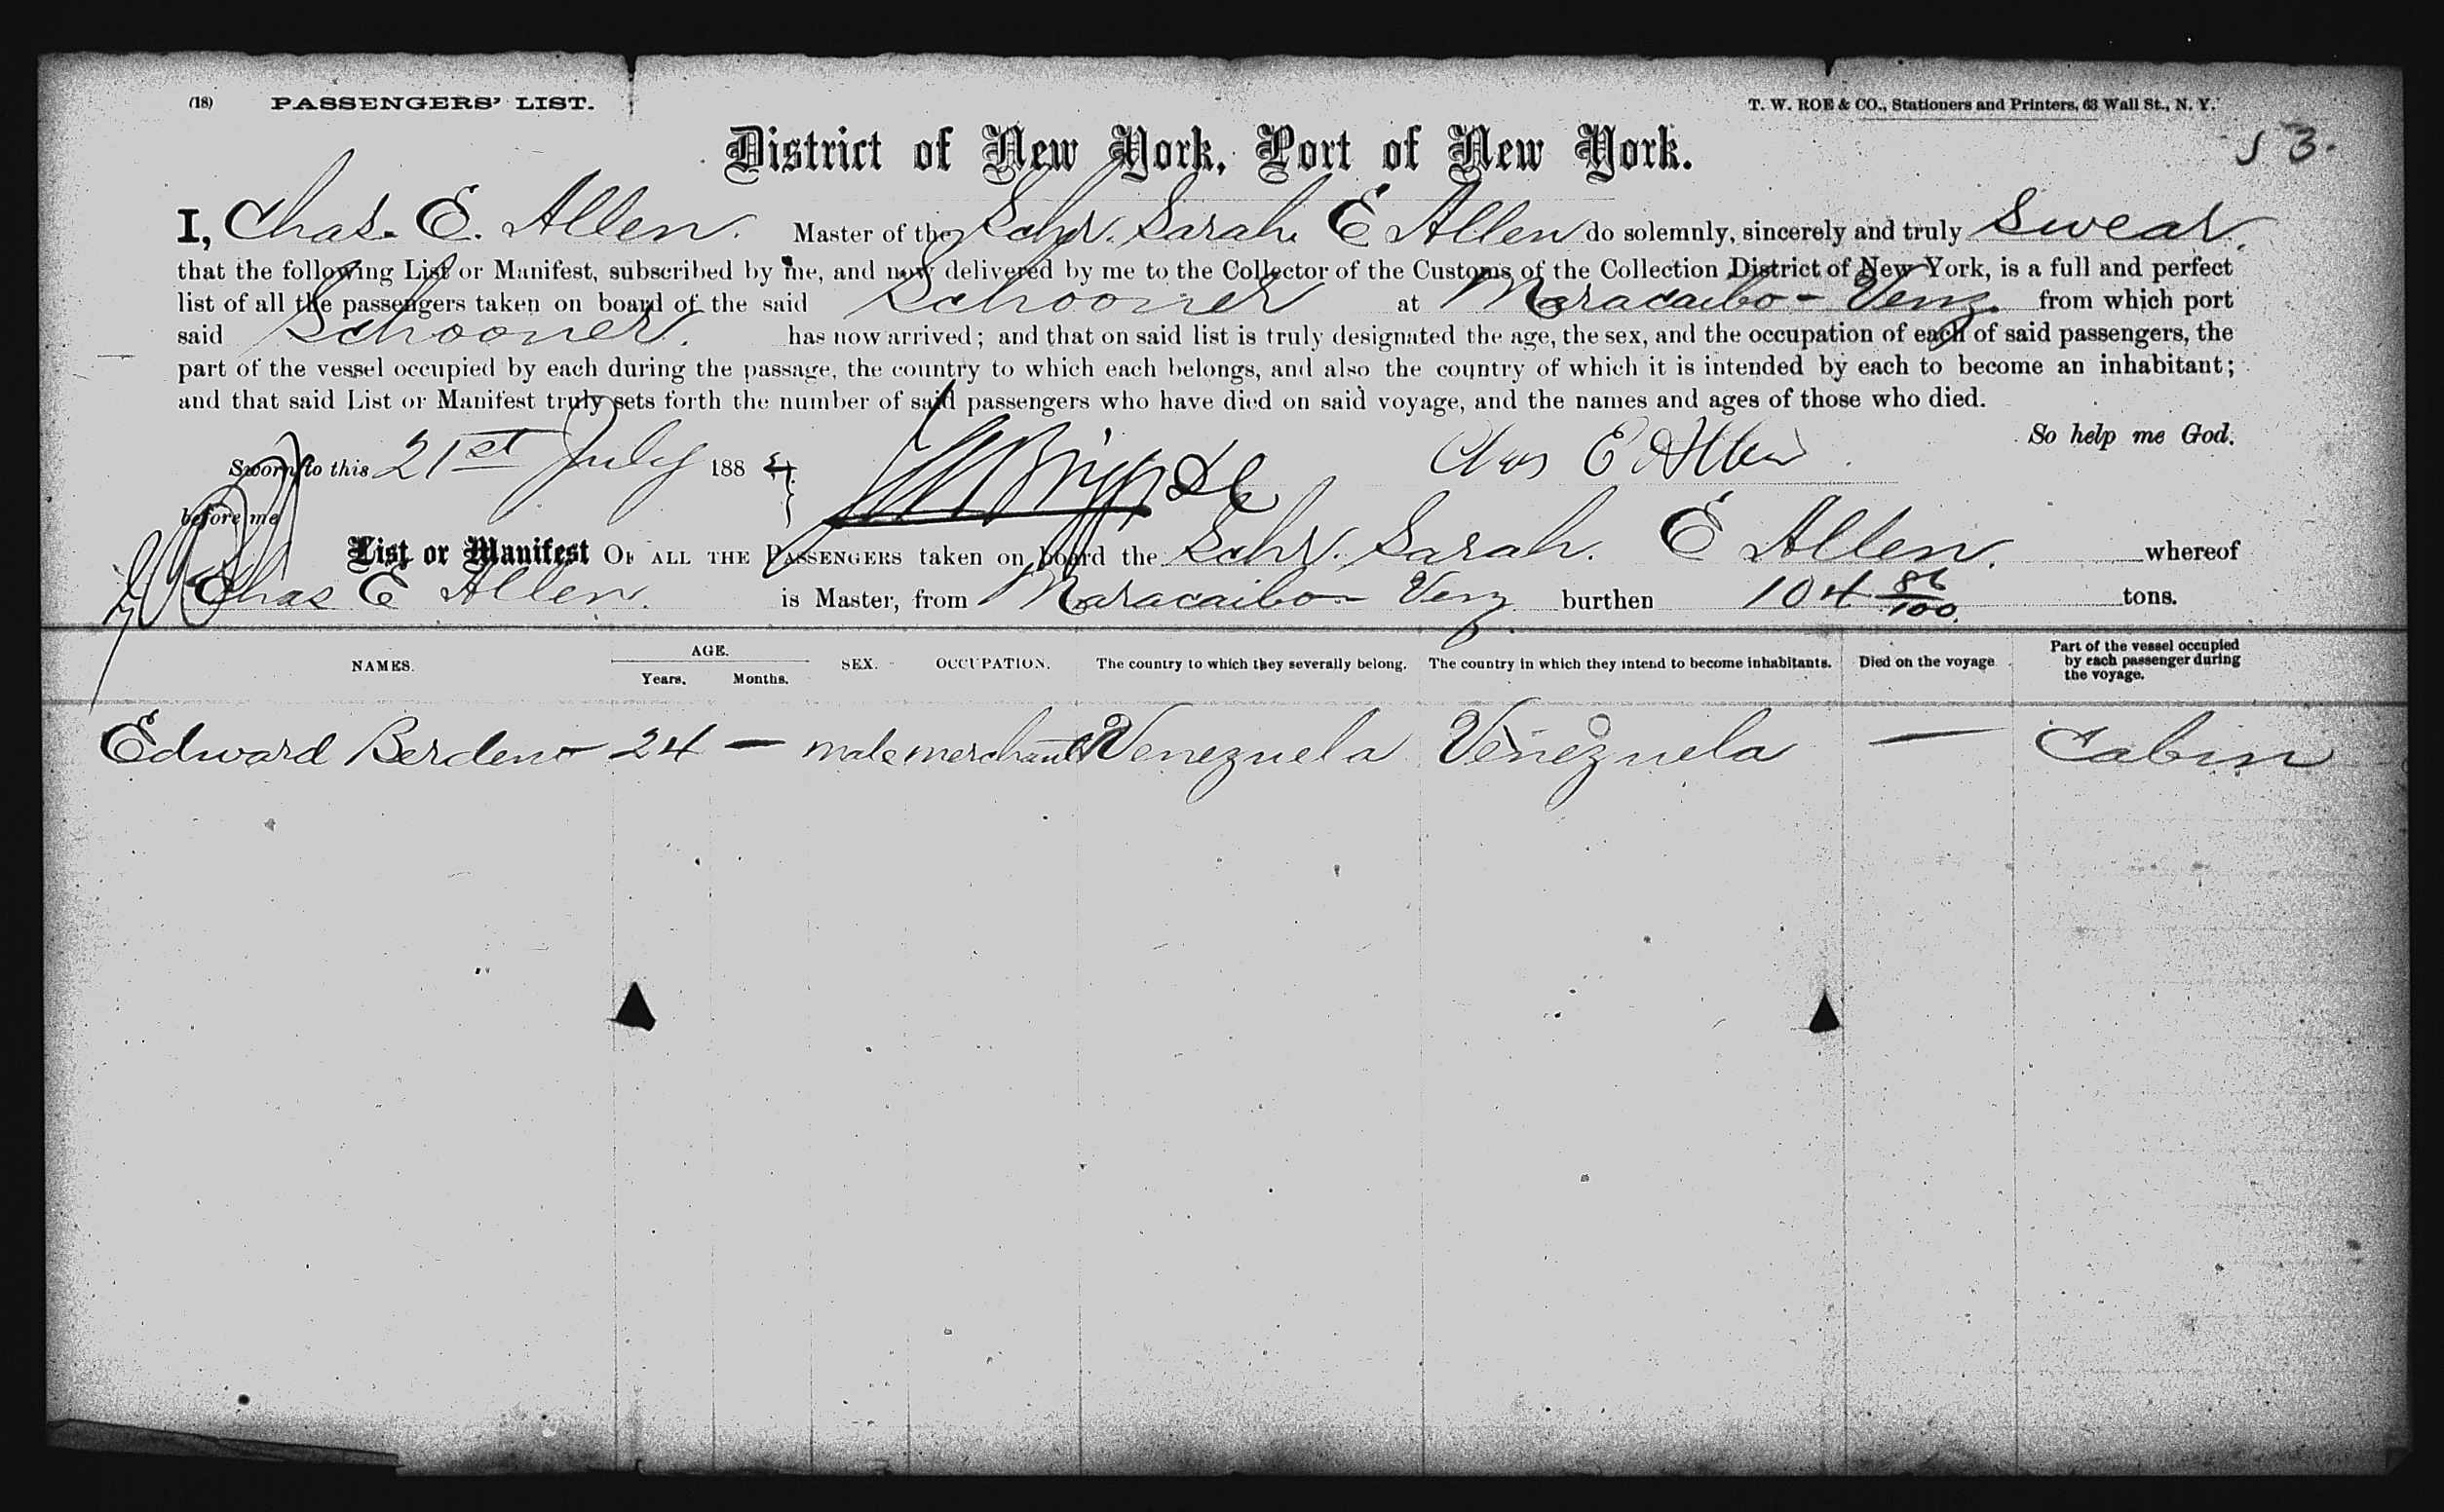 (18) PASSENGERS' LIST. T. W. ROE & CO., Stationers and Printers, 63 Wall St., N. Y.
District of New York, Port of New York. 53.
I, Chas. E. Allen. Master of the Schr. Sarah E Allen do solemnly, sincerely and truly swear.
that the following List or Manifest, subscribed by me, and now delivered by me to the Collector of the Customs of the Collection District of New York, is a full and perfect
list of all the passengers taken on board of the said Schooner at Maracaibo - Venz. from which port
said Schooner. has now arrived; and that on said list is truly designated the age, the sex, and the occupation of each of said passengers, the
part of the vessel occupied by each during the passage, the country to which each belongs, and also the country of which it is intended by each to become an inhabitant;
and that said List or Manifest truly sets forth the number of said passengers who have died on said voyage, and the names and ages of those who died.
So help me God.
Sworn to this 21st July 188 Chas E Allen
before me
List or Manifest OF ALL THE PASSENGERS taken on board the Schr. Sarah. E Allen. whereof
Chas E Allen. is Master, from Maracaibo - Venz burthen 104 86/100 tons.
NAMES. AGE. Years. Months. SEX. OCCUPATION. The country to which they severally belong. The country in which they intend to become inhabitants. Died on the voyage Part of the vessel occupied by each passenger during the voyage.
Edward Berdeno 24 — male merchant Venezuela Venezuela — Cabin